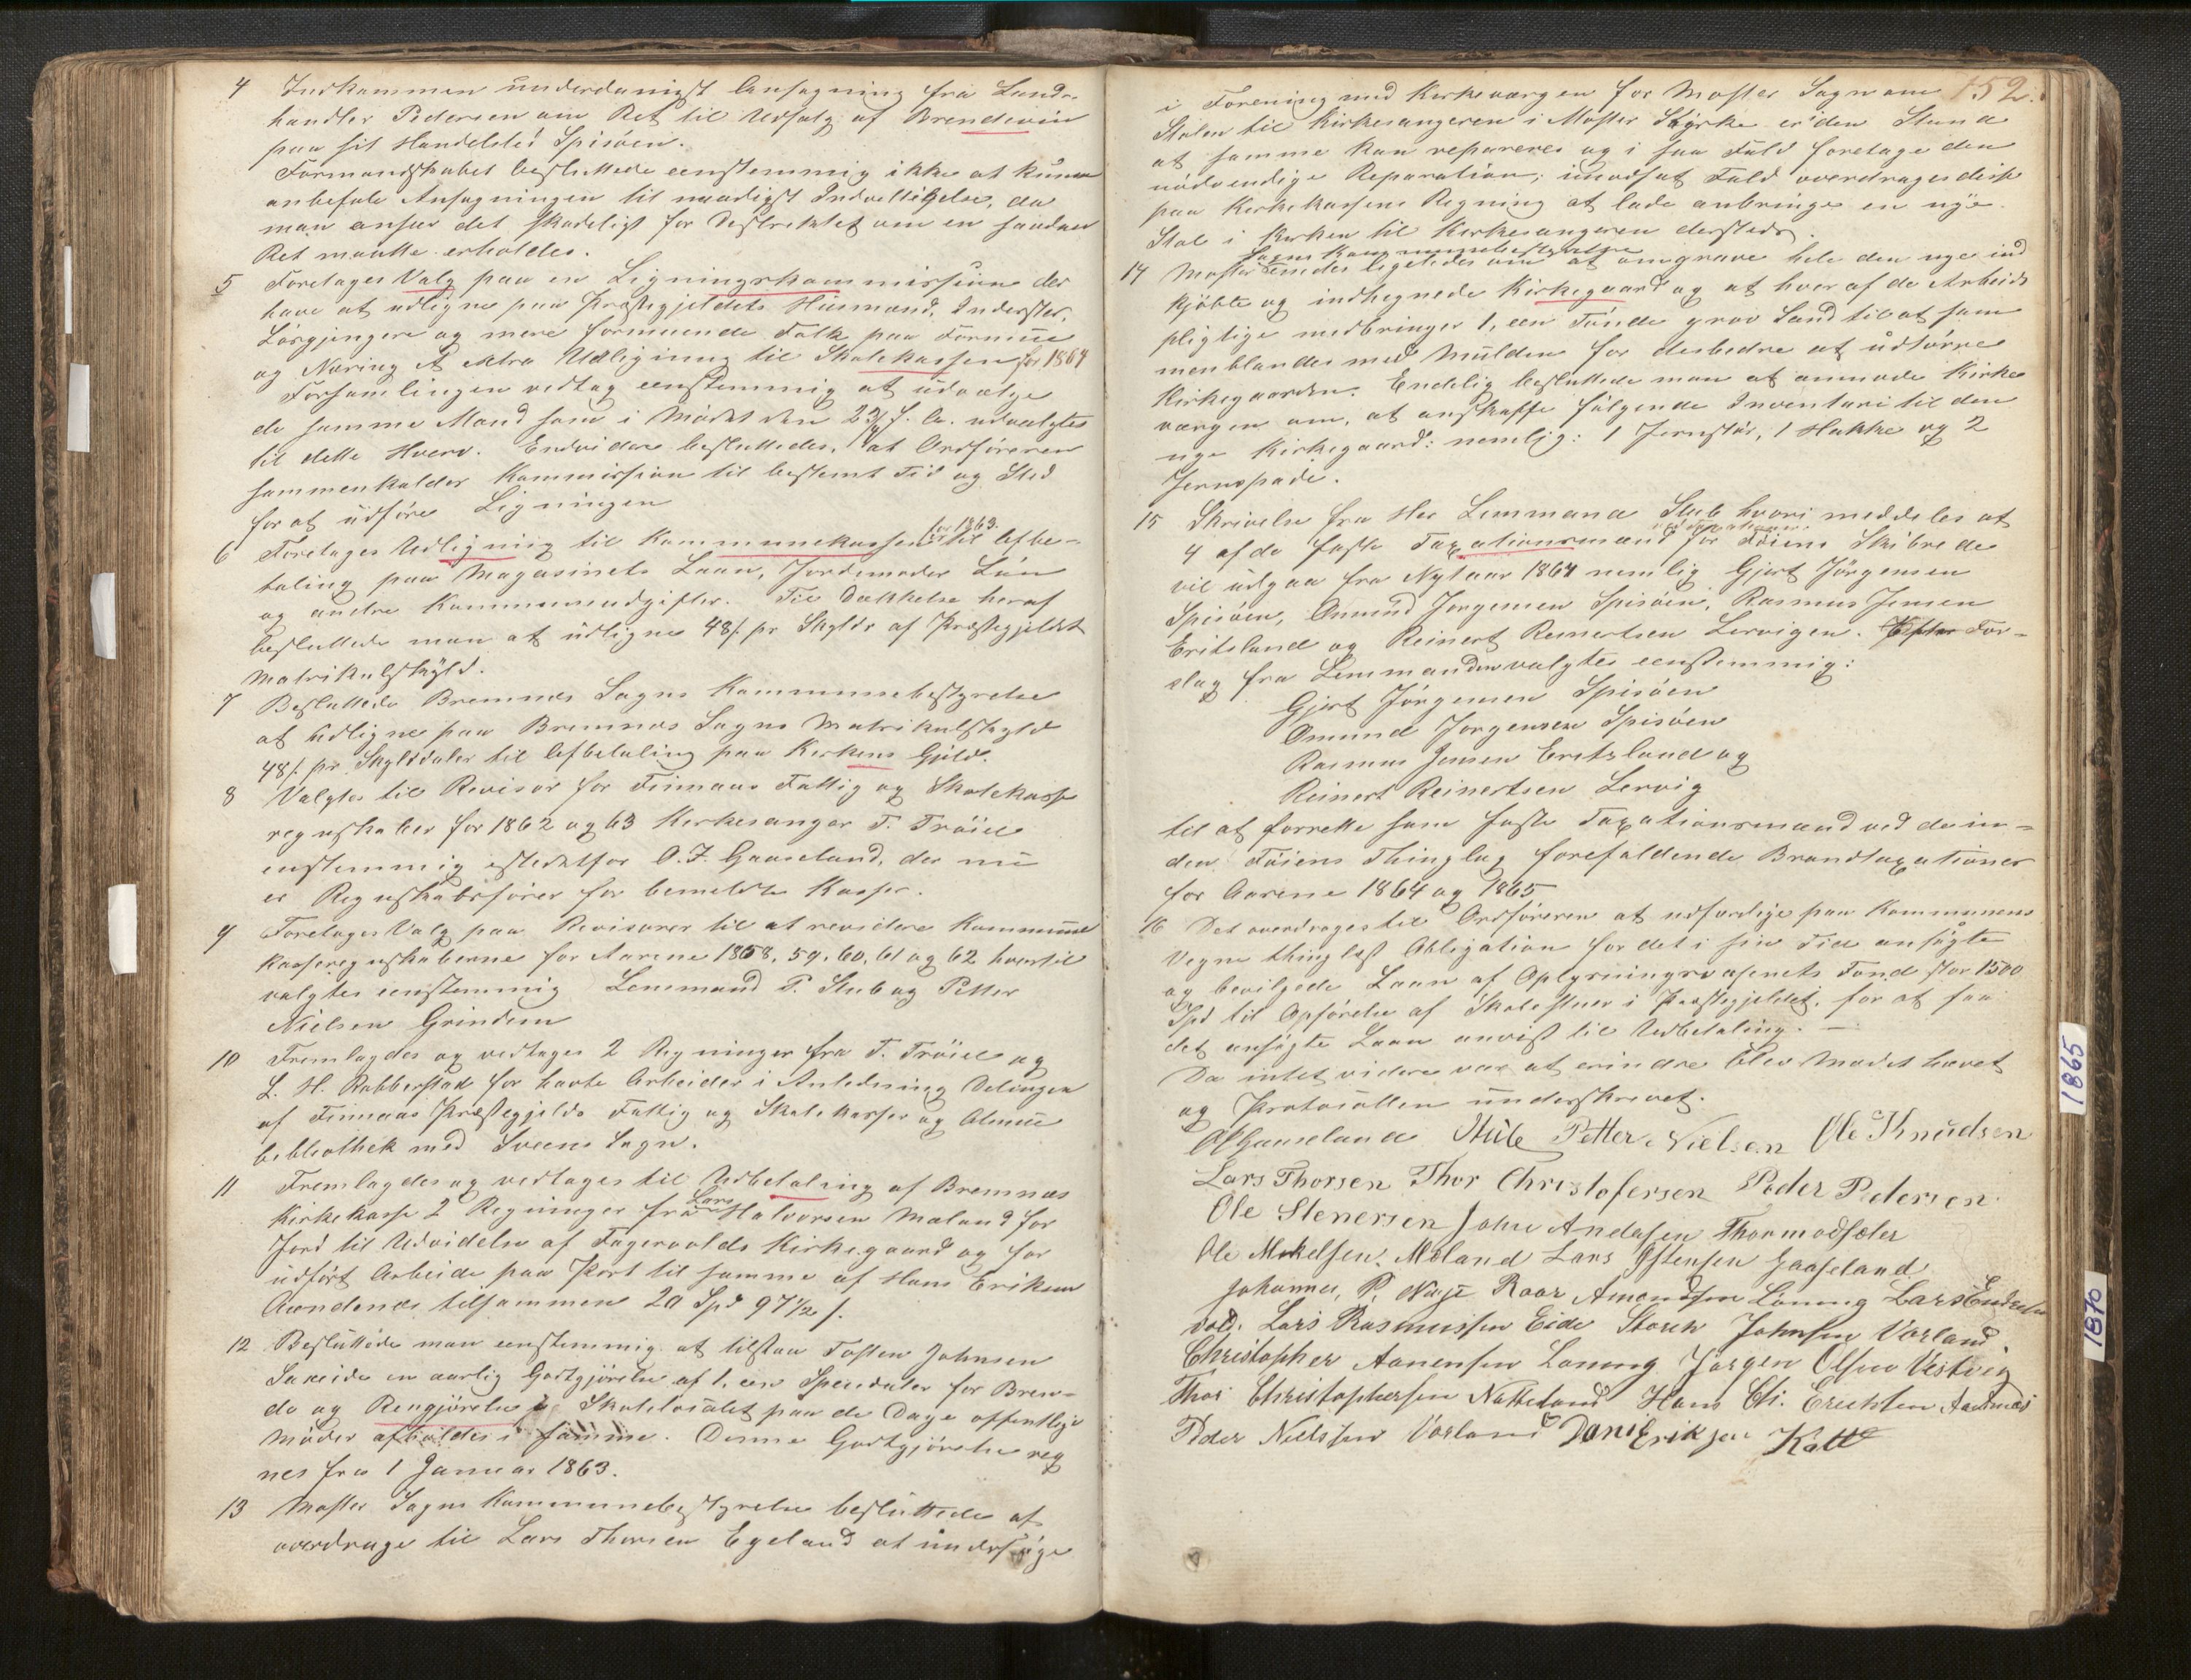 4 Indkommen underdanigst Ansøgning fra Land-
handler Pedersen om Ret til Udsalg af Brendeviin
paa sit Handelsted Spisöen.
Formandskabet besluttede eenstemmig ikke at kunne
anbefale Ansøgningen til naadigst Indvilligelse, da
man anser det skadeligt for Destriktet om en saadan
Ret maatte erholdes.
5 Foretages Valg paa en Ligningskommission der
have at udligne paa Præstegjeldets Huusmænd, Inderster,
Løsgjengere og mere formuende Folk paa Formue
og Næring Extra Udligning til Skolekassen for 1864
Forsamlingen vedtog eenstemmig at udvælge
de samme Mænd som i Mødet den f. A. udvalgtes
til dette Hverv. Endvidere besluttedes, at Ordføreren
sammenkalder Kommission til bestemt Tid og Sted
for at udføre Ligningen
for 1863.
6 Foretages Udligning til Kommunekassen til Afbe-
taling paa Magasinets Laan, Jordemoder Løn
og andre Kommuneudgifter. Til Dækkelse heraf
besluttede man at udligne 48 s. pr Skylds af Præstegjeldets
Matrikulskyld.
7 Besluttede Bremnes Sogns Kommunebestyrelse
at udligne paa Bremnes Sogns Matrikulskyld
48 s. pr. Skylddaler til Afbetaling paa Kirkens Gjeld.
8 Valgtes til Revisor for Finnaas Fattig og Skolekasse
regnskaber for 1862 og 63 Kirkesanger T. Trøiel
enstemmig istedetfor O. J. Gaaseland, der nu
er Regnskabsfører for bemeldte Kasser.
9 Foretages Valg paa Revisorer til at revidere Kommune
kasseregnskaberne for Aarene 1858, 59, 60, 61 og 62 hvortil
valgtes eenstemmig Lensmand P. Stub og Petter
Nielsen Grindem
10 Fremlagdes og vedtages 2 Regninger fra T. Trøiel og
L. H. Robberstad for havte Arbeider i Anledning Delingen
af Finnaas Præstegjelds Fattig og Skolekasser og Almue
bibliothek med Sveens Sogn.
11 Fremlagdes og vedtages til Udbetaling af Bremnæs
Lars
Kirkekasse 2 Regninger fra Halvorsen Mæland for
Jord til Udvidelse af Fagervolds Kirkegaard og for
udført Arbeide paa Port til samme af Hans Eriksen
tilsammen 20 Spd 97 1/2 s.
12 Besluttede man eenstemmig at tilstaa Tosten Johnsen
en aarlig Godtgjørelse af 1, een Speciedaler for Bren-
de og Rengjørelse i Skolelocalet paa de Dage offentlige
Møder afholdes i samme. Denne Godtgjørelse reg
nes fra 1 Januar 1863.
13 Moster Sogns Kommunebestyrelse besluttede at
overdrage til Lars Thorsen Egeland at undersøge
152.
i Forening med Kirkeværgen for Moster Sogn om
Stolen til Kirkesangeren i Moster Kirke er i den Stand
at samme kan repareres og i saa Fald foretage den
nødvendige Reparation; imodsat Fald overdrages disse
paa Kirkekassens Regning at lade anbringe en nye
Stol i Kirken til Kirkesangeren dersteds.
Sogns Kommunebestyrelse
14 Moster ligeledes om at omgrave hele den nye ind
kjøbte og indhegnede Kirkegaard og at hver af de Arbeids
pligtige medbringer 1, een Tønde grov Sand til at sam
menblandes med Mulden for desbedre at udtørre
Kirkegaarden. Endelig besluttede man at anmode Kirke
værgen om, at anskaffe følgende Inventari til den
nye Kirkegaard: nemlig: 1 Jernstør, 1 Hakke og 2
Jernspade.
15 Skrivelse fra Hr Lensmand Stub hvori meddeles at
4 af de faste Taxationsmænd for Føiens Skibrede
vil udgaa fra Nytaar 1864 nemlig Gjert Jörgensen
Spisöen, Omund Jorgensen Spisöen, Rasmus Jensen
Eritsland og Reinert Reinertsen Lervigen. Efter For-
slag fra Lensmanden valgtes eenstemmig:
Gjert Jörgensen Spisöen
Omund Jorgensen Spisöen
Rasmus Jensen Eritsland og
Reinert Reinertsen Lervig
til at forrette som faste Taxationsmænd ved de in-
den Föiens Thinglag forefaldende Brandtaxationer
for Aarene 1864 og 1865
16 Det overdrages til Ordføreren at udfærdige paa Kommunens
Vegne thinglæst Obligation for det i sin Tid ansøgte
og bevilgede Laan af Oplysningsvæsenets Fond stor 1500
Spd til Opførelse af Skolestuer i Præstegjeldet, for at faa
det ansøgte Laan anvist til Udbetaling. —
Da intet videre var at erindre blev Mødet hævet
og Protocollen underskrevet.
OJGaaseland Stub Petter Nielsen Ole Knudsen
Lars Thorsen Thor Christofersen Peder Pedersen
Ole Stenersen John Andasen Thormodsæter
Ole Mikelsen Mæland Lars Østensen Gaaseland
Johannes P. Roar Amundsen Löning Lars
Lars Rasmussen Eide Johnsen Vorland
Christopher Aanensen Loning Jörgen Olsen Vestvig
Thor Christophersen Natteland Hans Ch. Erichsen
Peder Nielssen Vorland Daniel Eriksen
1865
1870